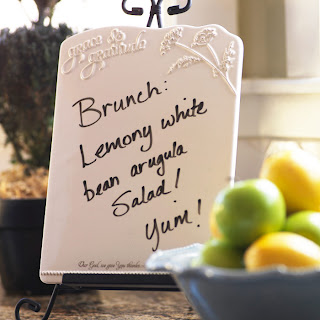 grace &
gratitude
Brunch:
Lemony white
bean arugula
Salad!
Yum!
Our God, we give You thanks